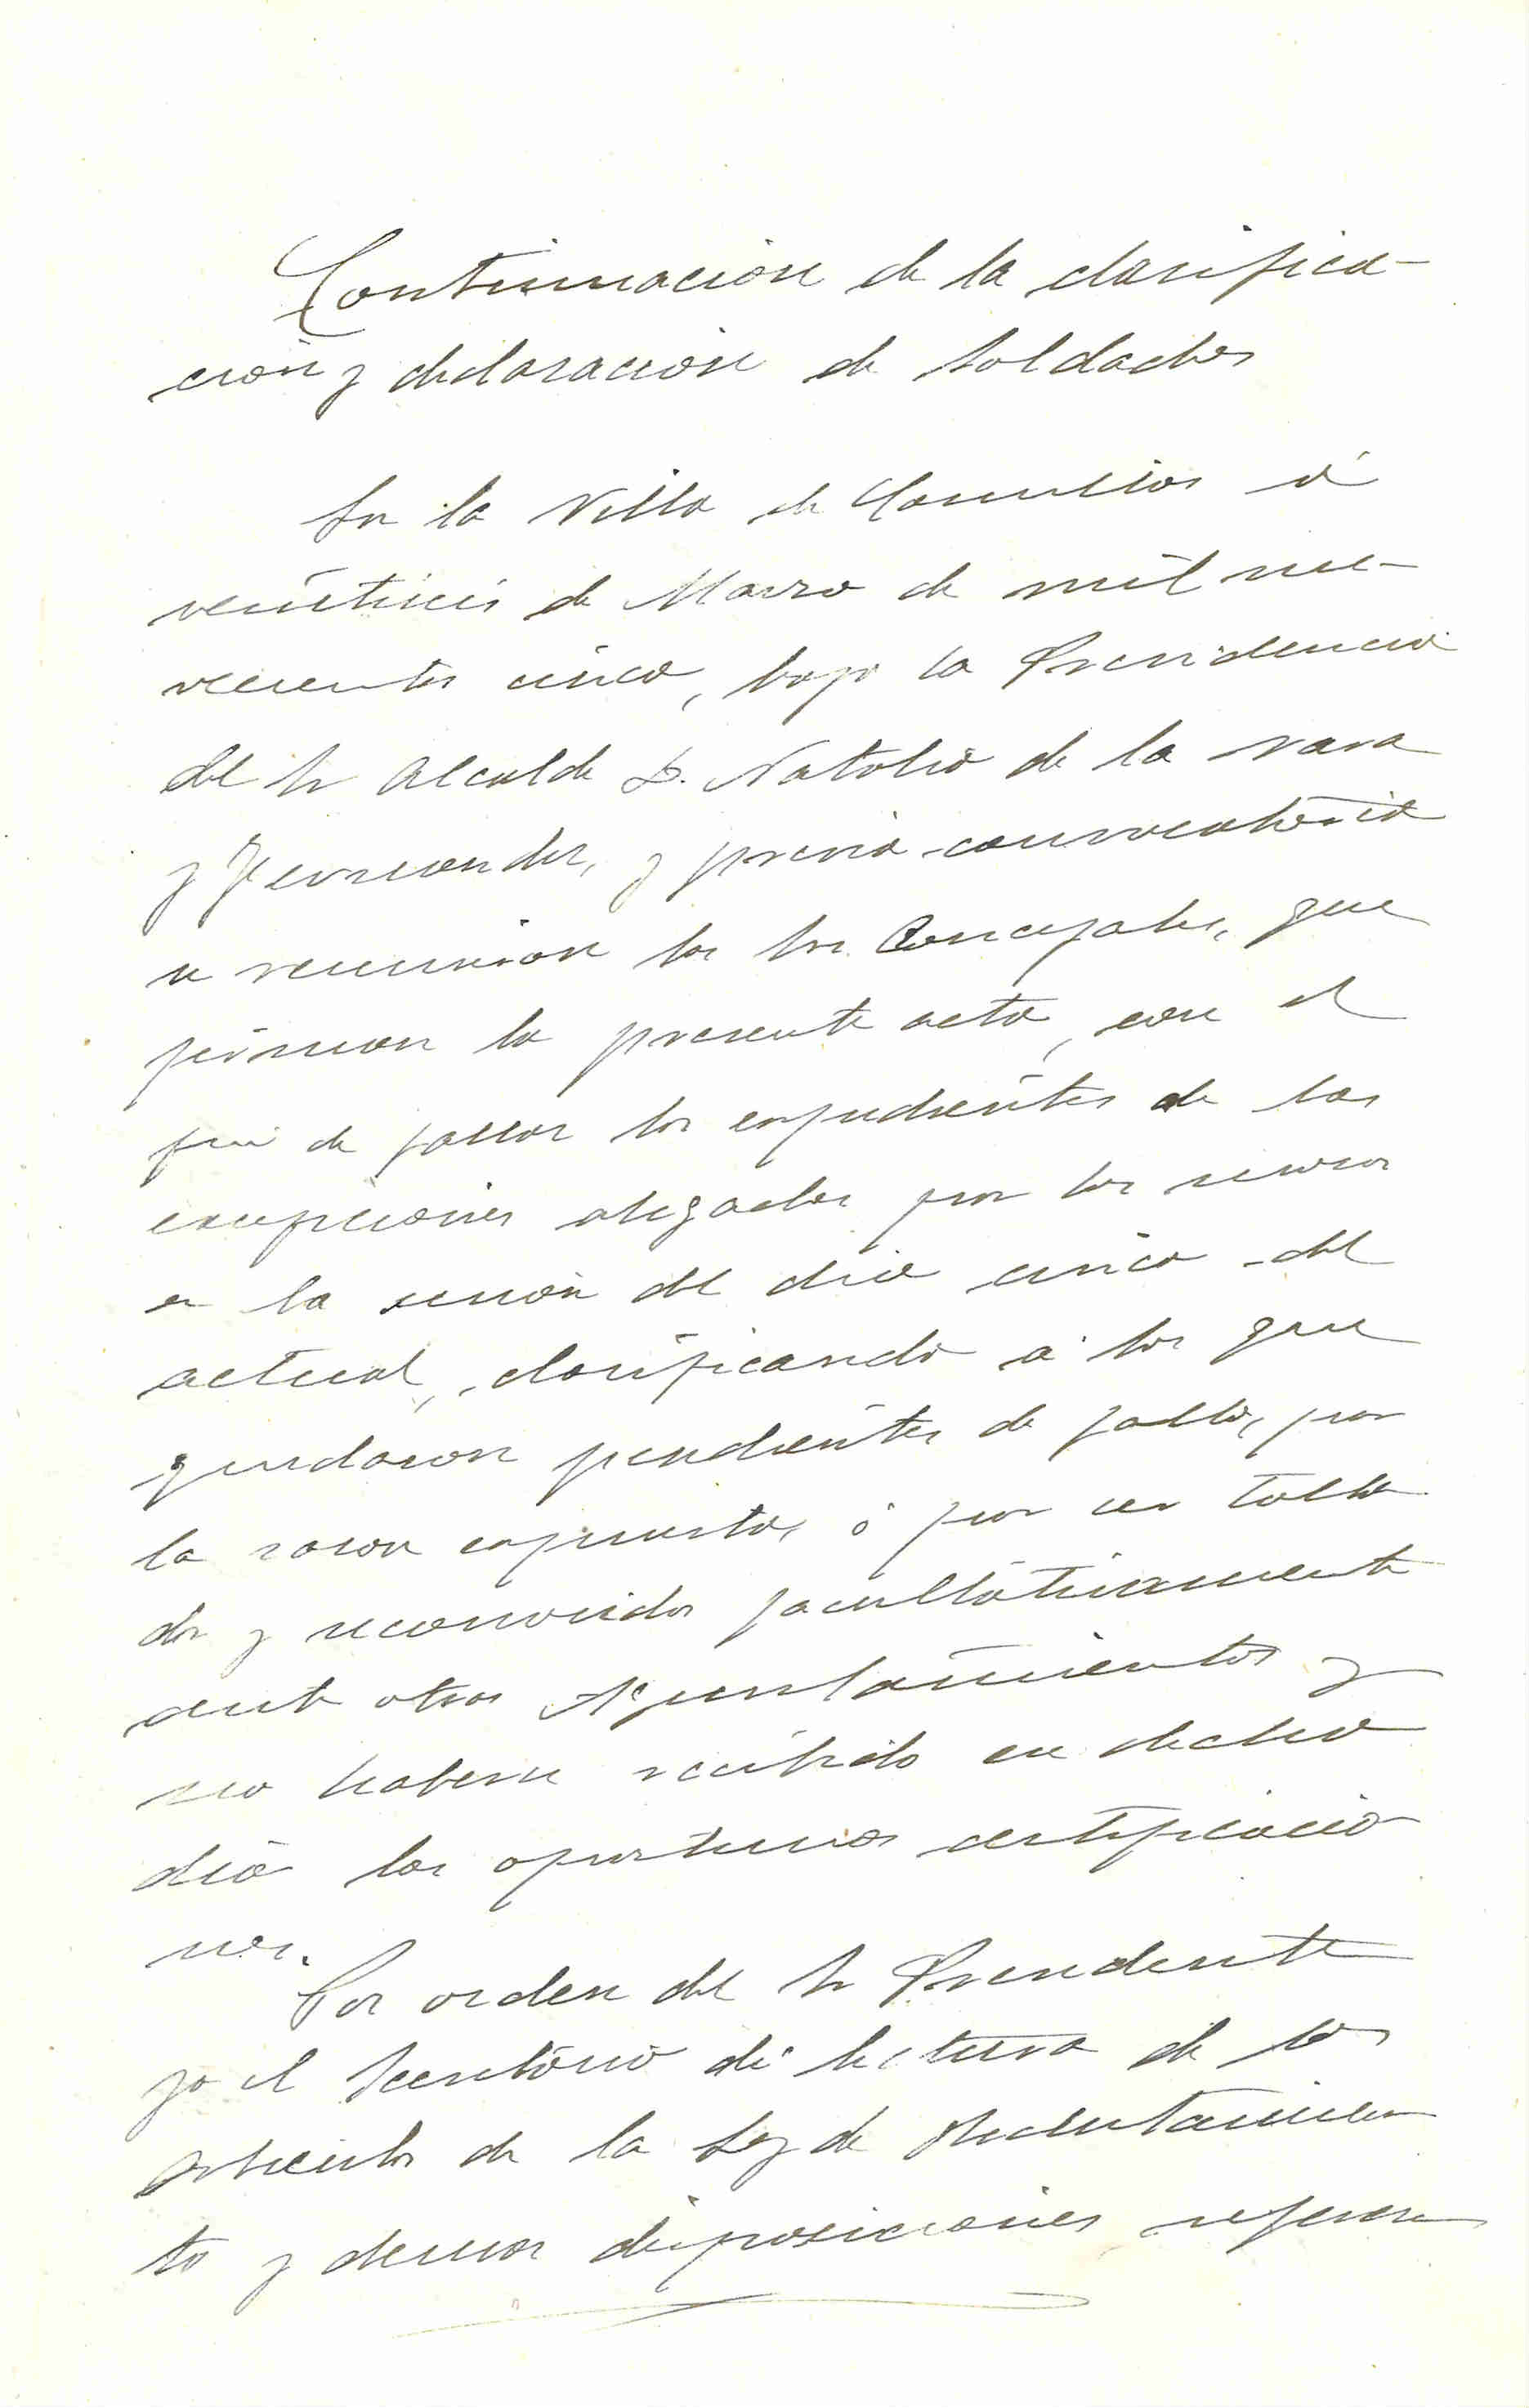 Continuacion de la clasifica-
cion y declaracion de soldados
En la Villa de Comillas á
veintiseis de Marzo de mil no-
vecientos cinco, bajo la Presidencia
del Sr Alcalde D. Natolio de la
y Fernandez, y previa convocatoria
se reunieron los Sres. Concejales, que
firman la presente acta, con el
fin de fallar los expedientes de las
excepciones alegadas por los mozos
en la sesion del dia cinco del
actual, clasificando á los que
quedaron pendientes de fallo, por
la razon expuesta, ó por ser talla
dos y reconocidos facultativamente
ante otros Ayuntamientos y
no haberse recibido en dicho
dia las oportunas certificacio
nes.
Por orden del Sr Presidente
yo el Secretario di lectura de los
articulos de la Ley de Reclutamien
to y demas disposiciones referen